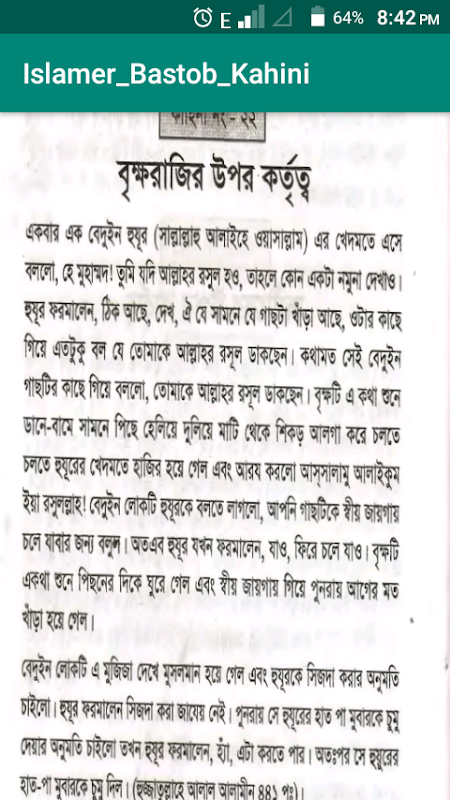 E 64% 8:42 PM
Islamer_Bastob_Kahini
কাহিনী নং - ২২
বৃক্ষরাজির উপর কর্তৃত্ব
একবার এক বেদুইন হুযূর (সাল্লাল্লাহু আলাইহে ওয়াসাল্লাম) এর খেদমতে এসে
বললো, হে মুহাম্মদ! তুমি যদি আল্লাহর রসুল হও, তাহলে কোন একটা নমুনা দেখাও।
হুযূর ফরমালেন, ঠিক আছে, দেখ, ঐ যে সামনে যে গাছটা খাঁড়া আছে, ওটার কাছে
গিয়ে এতটুকু বল যে তোমাকে আল্লাহর রসূল ডাকছেন। কথামত সেই বেদুইন
গাছটির কাছে গিয়ে বললো, তোমাকে আল্লাহর রসূল ডাকছেন। বৃক্ষটি এ কথা শুনে
ডানে-বামে সামনে পিছে হেলিয়ে দুলিয়ে মাটি থেকে শিকড় আলগা করে চলতে
চলতে হুযূরের খেদমতে হাজির হয়ে গেল এবং আরয করলো আস্সালামু আলাইকুম
ইয়া রসুলল্লাহ! বেদুইন লোকটি হুযূরকে বলতে লাগলো, আপনি গাছটিকে স্বীয় জায়গায়
চলে যাবার জন্য বলুন। অতএব হুযূর যখন ফরমালেন, যাও, ফিরে চলে যাও। বৃক্ষটি
একথা শুনে পিছনের দিকে ঘুরে গেল এবং স্বীয় জায়গায় গিয়ে পুনরায় আগের মত
খাঁড়া হয়ে গেল।
বেদুইন লোকটি এ মুজিজা দেখে মুসলমান হয়ে গেল এবং হুযূরকে সিজদা করার অনুমতি
চাইলো। হুযূর ফরমালেন সিজদা করা জায়েয নেই। পুনরায় সে হুযূরের হাত পা মুবারকে চুমু
দেয়ার অনুমতি চাইলো তখন হুযূর ফরমালেন, হ্যাঁ, এটা করতে পার। অতঃপর সে হুযূরের
হাত-পা মুবারকে চুমু দিল। (হুজ্জাতুল্লাহে আলাল আলামীন ৪৪১ পৃঃ)।